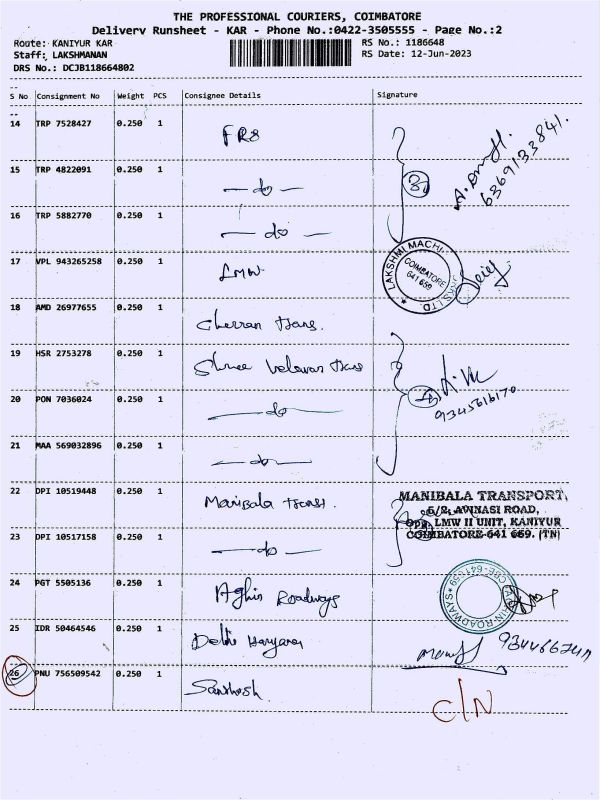 THE PROFESSIONAL COURIERS, COIMBATORE
Delivery Runsheet - KAR - Phone No.:0422-3505555 - Page No.:2
Route: KANIYUR KAR RS No.: 1186648
Staff: LAKSHMANAN RS Date: 12-Jun-2023
DRS No.: DCJB118664802
S No Consignment No Weight PCS Consignee Details Signature
14 TRP 7528427 0.250 1 FR8
6369133841.
15 TRP 4822091 0.250 1 — do — 3
16 TRP 5882770 0.250 1 — do —
17 VPL 943265258 0.250 1 LMW LAKSHMI MACHI COIMBATORE 641 659 RKS LTD.
18 AMD 26977655 0.250 1 Cherran Trans.
19 HSR 2753278 0.250 1 Shree Velavan Trans
20 PON 7036024 0.250 1 — do — 9345616170
21 MAA 569032896 0.250 1 — do —
22 DPI 10519448 0.250 1 Manibala Trans. MANIBALA TRANSPORT,
6/2, AVINASI ROAD,
Opp. LMW II UNIT, KANIYUR
23 DPI 10517158 0.250 1 — do — COIMBATORE-641 659. (TN)
24 PGT 5505136 0.250 1 Aghin Roadways CBE-641659
25 IDR 50464546 0.250 1 Delhi Haryana
26 PNU 756509542 0.250 1 Santhosh C/N